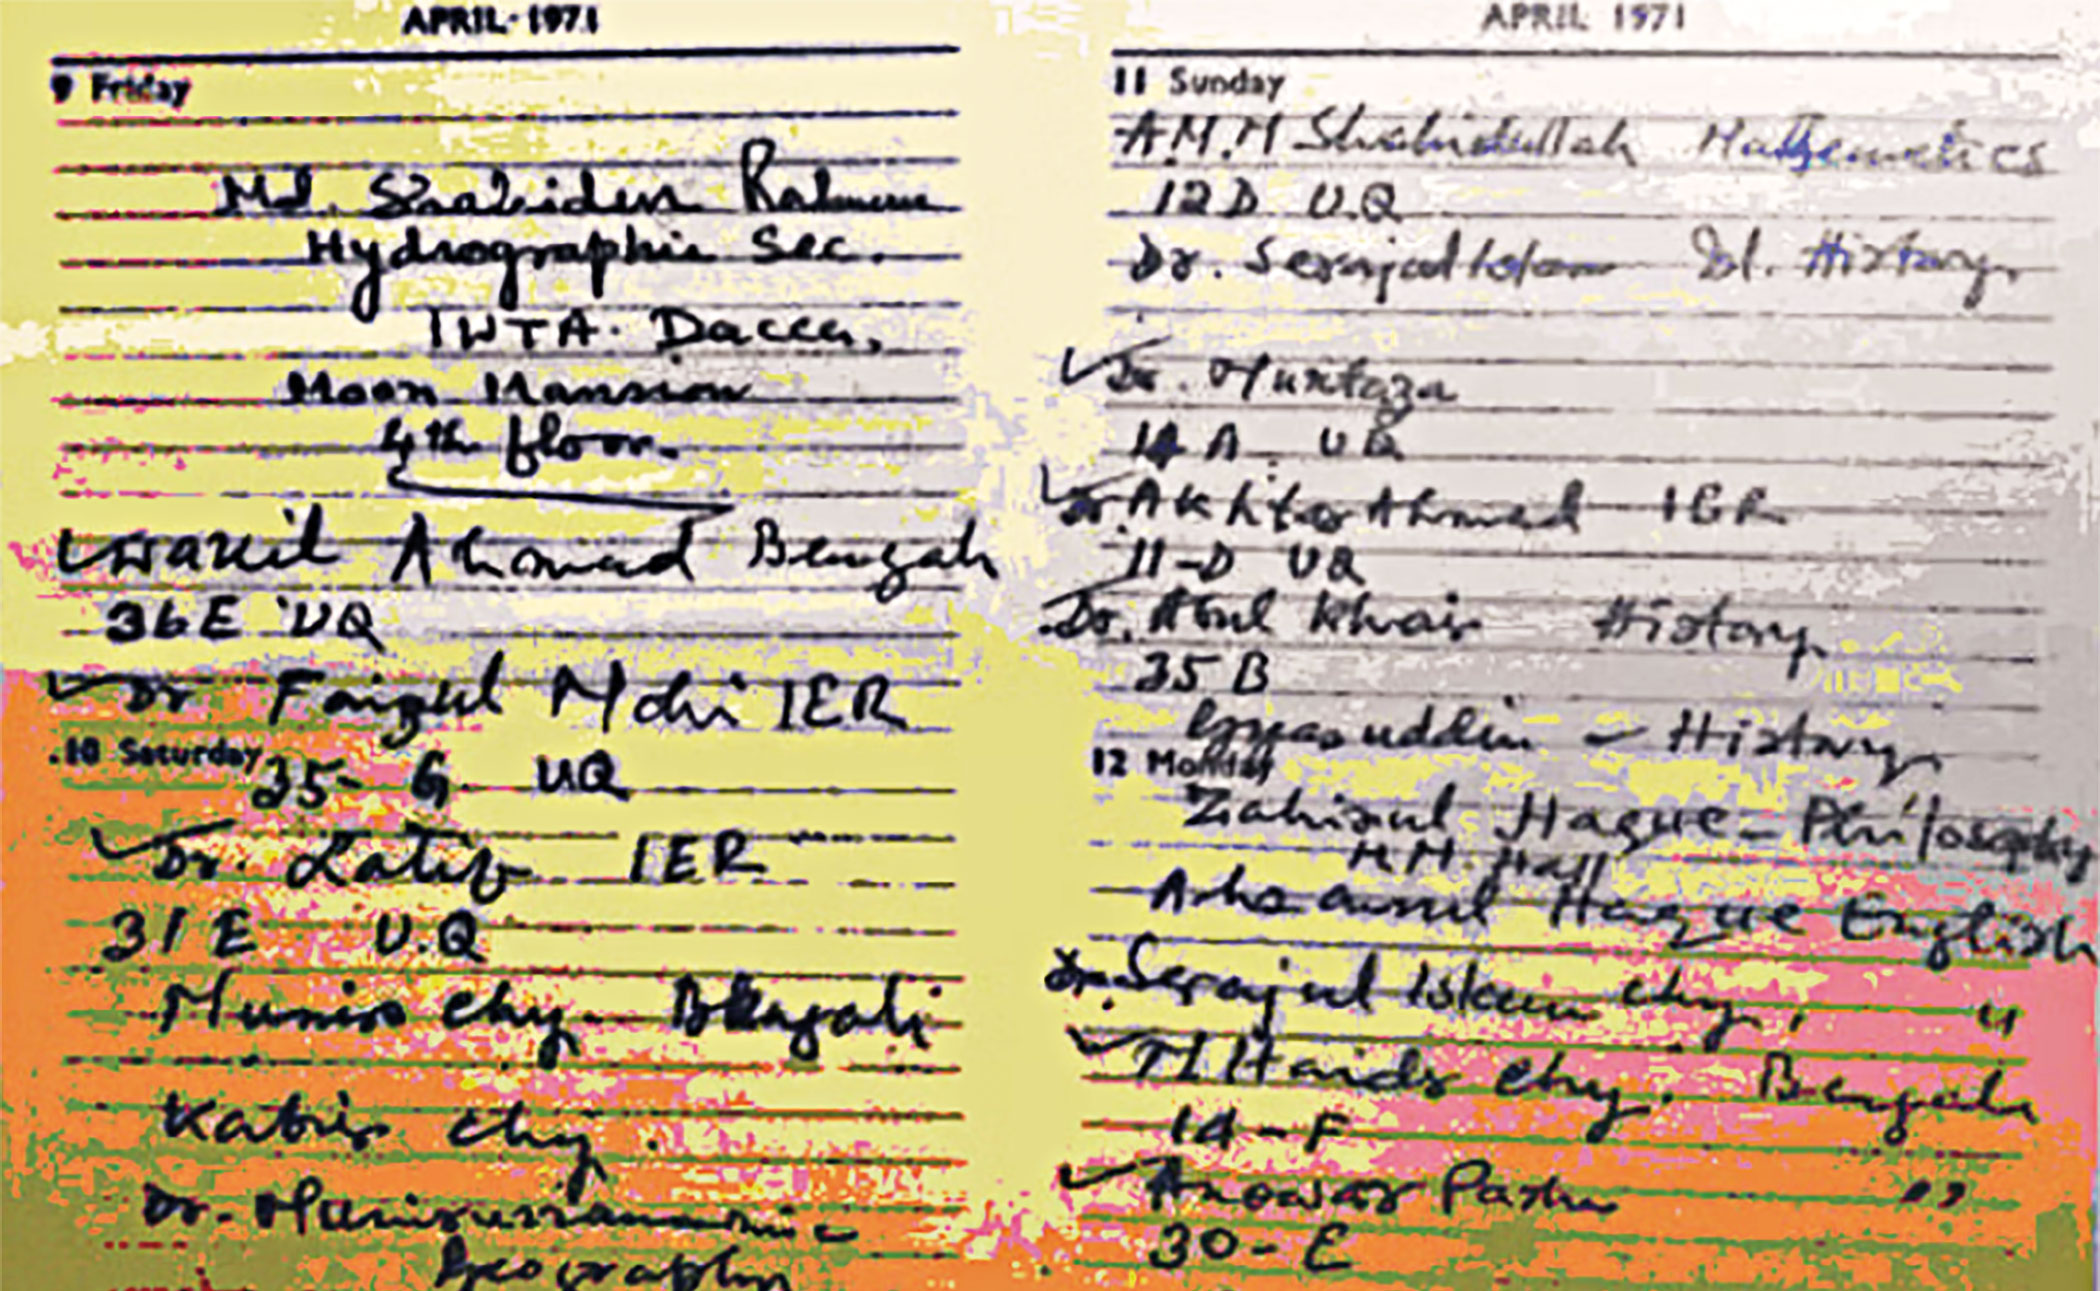 APRIL-1971
9 Friday
Md. Shahidur Rahman
Hydrographic Sec.
IWTA. Dacca.
Moon Mansion
4th floor.
Wakil Ahmad Bengali
36E UQ
Dr Faizul Mohi IER
10 Saturday
35-G UQ
Dr. Latif IER
31 E U.Q
Munir Chy. Bengali
Kabir Chy.
Dr. Geography
APRIL 1971
11 Sunday
A.M.M Shahidullah Mathemetics
12D U.Q
Dr. Serajul Islam Isl. History
Dr. Murtaza
14 A UQ
Dr. Akhtar Ahmad IER
11-D UQ
Dr. Abul Khair History
35 B
Gyasuddin - History
12 Monday
Zahirul Haque - Philosophy
M.M. Hall
Ahsanul Haque English
Dr. Serajul Islam Chy, "
M Haider Chy. Bengali
14-F
Anowar Pasha "
30-E